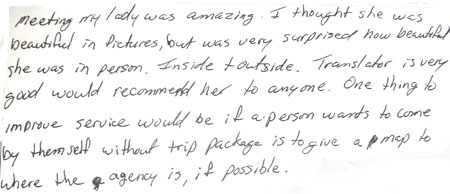 Meeting my lady was amazing. I thought she was
beautiful in Pictures, but was very surprised how beautiful
she was in person. Inside + outside. Translator is very
good would recommend her to anyone. One thing to
improve service would be if a person wants to come
by themself without trip package is to give a map to
where the agency is, if possible.